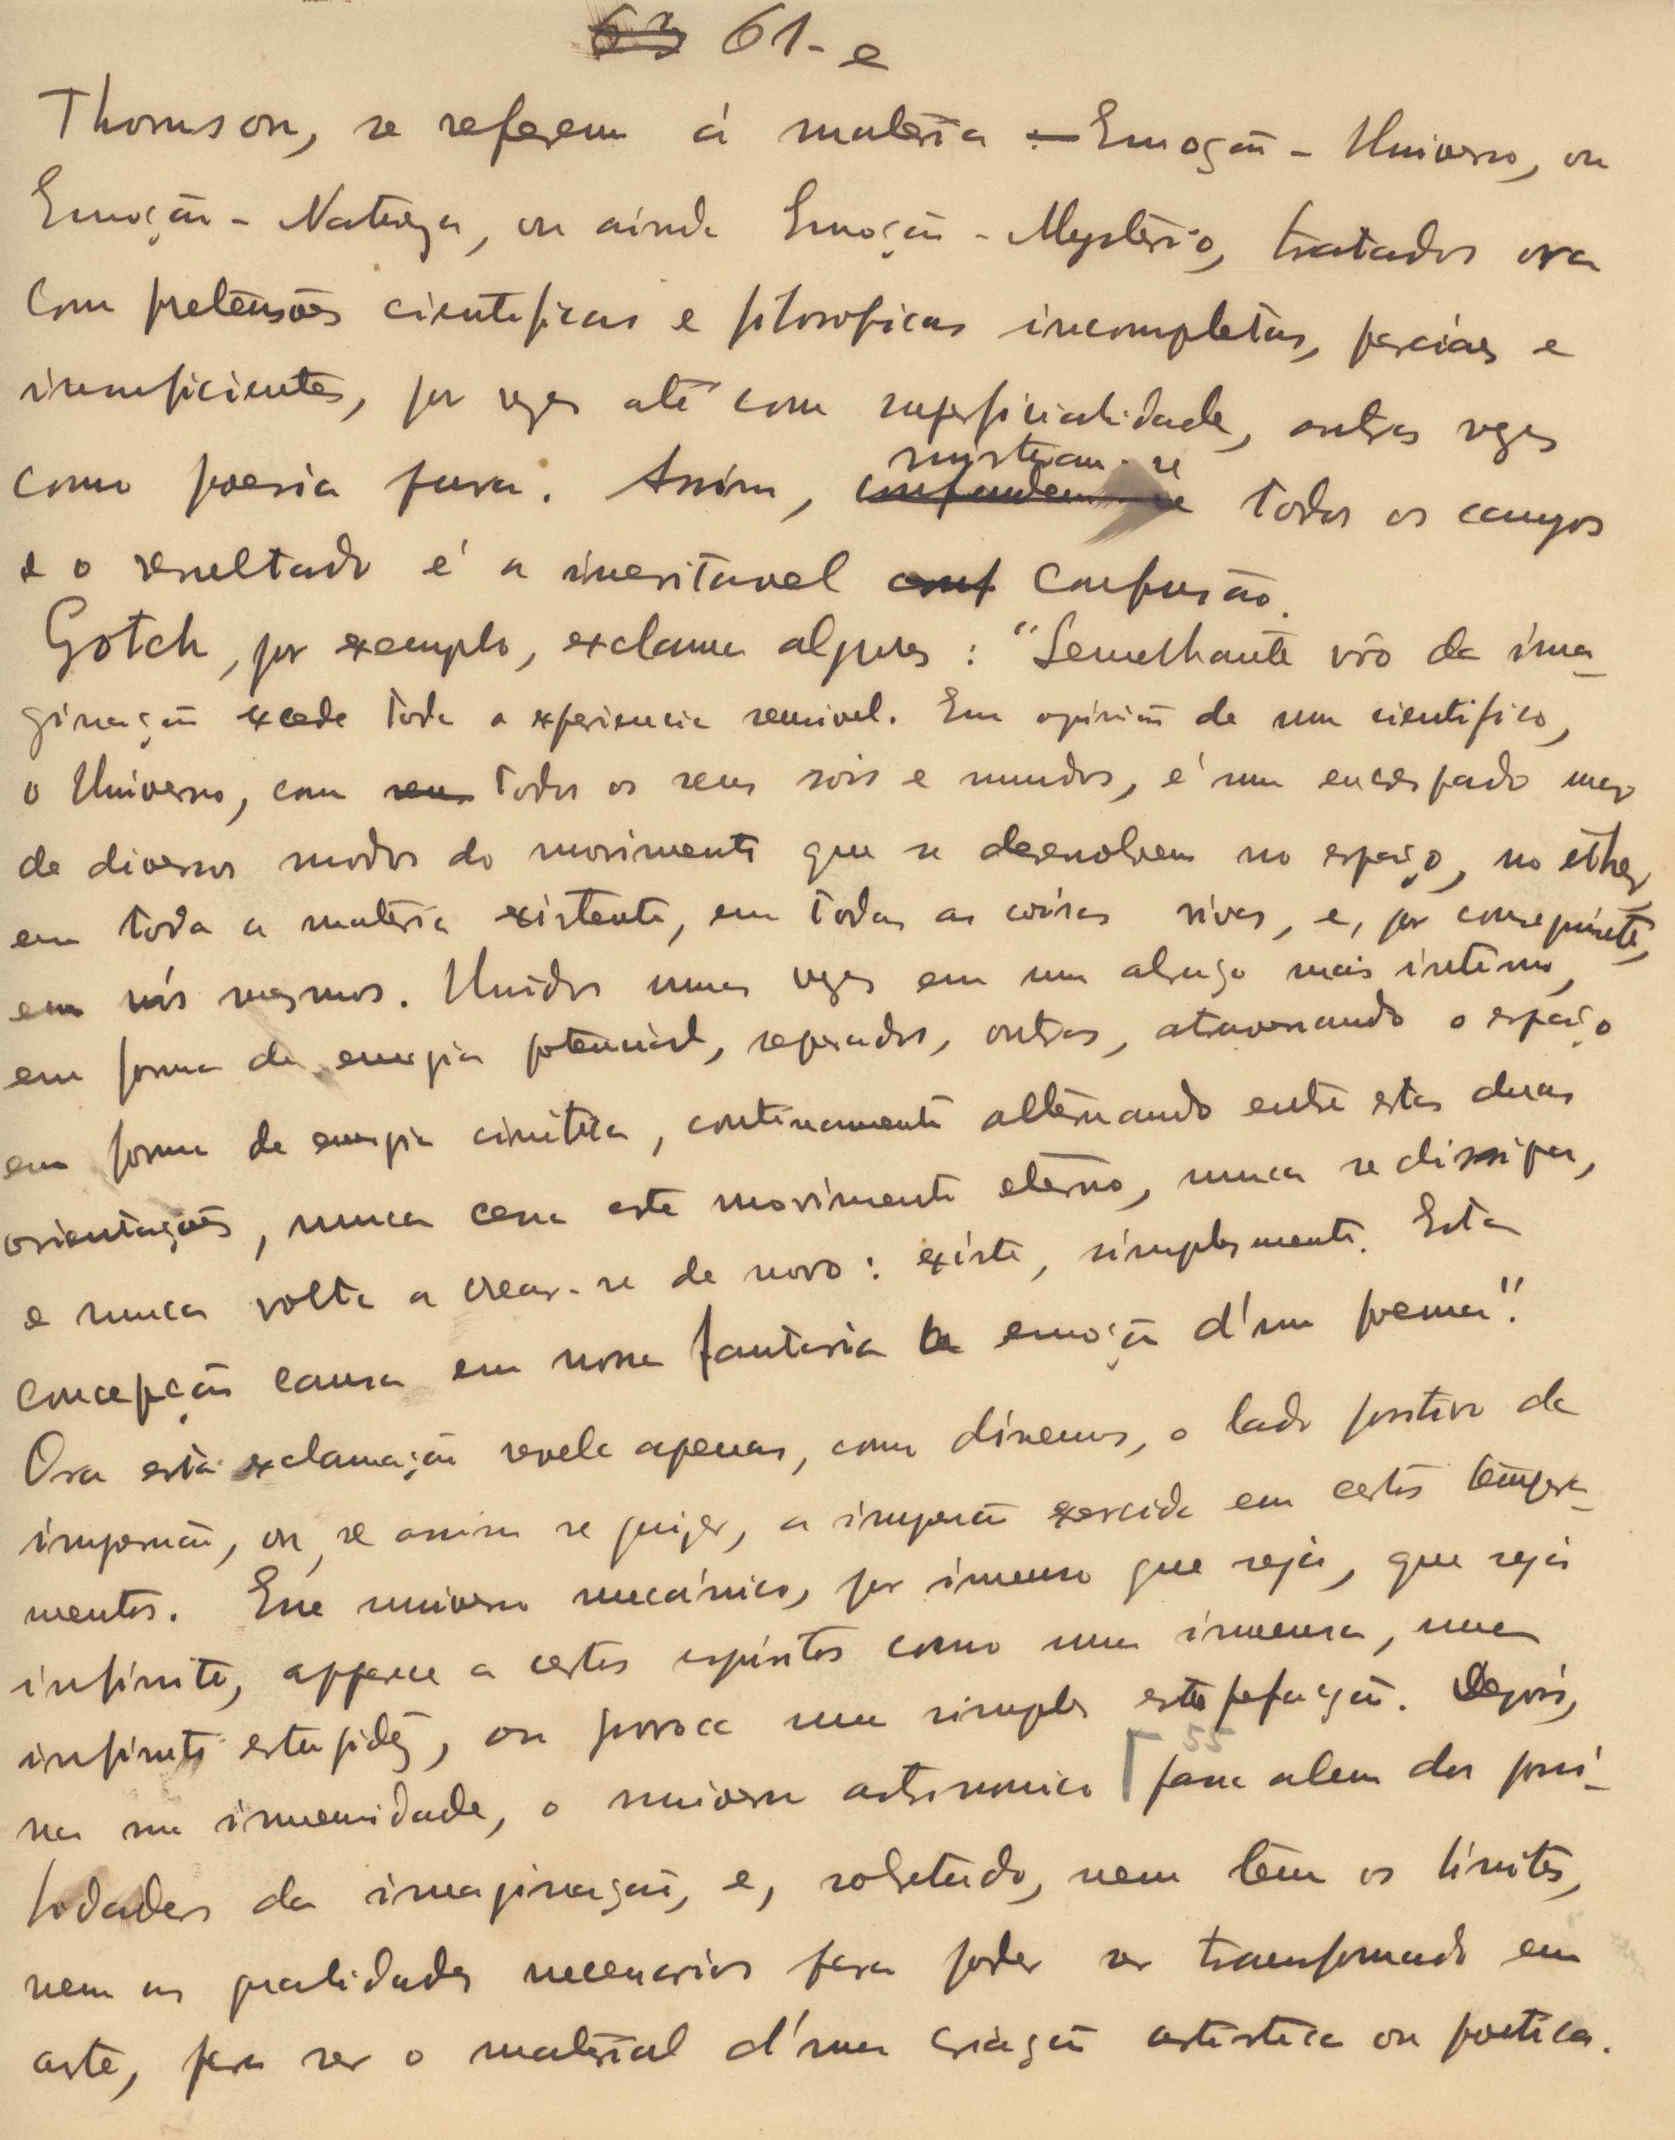 63 61-e
Thomson, se referem á materia - Emoção - Universo, ou
Emoção - Natureza, ou ainda Emoção - Mysterio, tratados ora
com pretensões cientificas e filosoficas incompletas, parciaes e
insuficientes, por vezes até com superficialidade, outras vezes
como poesia pura. Assim, confundem-se misturam-se todos os campos
e o resultado é a inevitavel conf confusão.
Gotch, por exemplo, exclama algures: "Semelhante vôo da ima-
ginação excede toda a experiencia sensivel. Em opinião de um cientifico,
o Universo, com seus todos os seus sois e mundos, é um encrespado mar
de diversos modos do movimento que se desenvolvem no espaço, no ether,
em toda a materia existente, em todas as coisas vivas, e, por conseguinte,
em nós mesmos. Unidos umas vezes em um abraço mais intimo,
em forma de energia potencial, separados, outras, atravessando o espaço
em forma de energia cinetica, continuamente alternando entre estas duas
orientações, nunca cessa este movimento eterno, nunca se dissipa,
e nunca volta a crear-se de novo: existe, simplesmente. Esta
concepção causa em nossa fantasia a emoção d'um poema".
Ora esta exclamação revela apenas, como dissemos, o lado positivo da
impressão, ou, se assim se quizer, a impressão exercida em certos tempera-
mentos. Esse universo mecánico, por imenso que seja, que seja
infinito, apparece a certos espiritos como uma immensa, uma
infinita estupidez, ou provoca uma simples estupefacção. Depois,
na sua immensidade, o universo astronomico [ 55 passa alem das possi-
bidades da imaginação, e, sobretudo, nem tem os limites,
nem as qualidades necessarios para poder ser transformado em
arte, para ser o material d'uma criação artistica ou poetica.